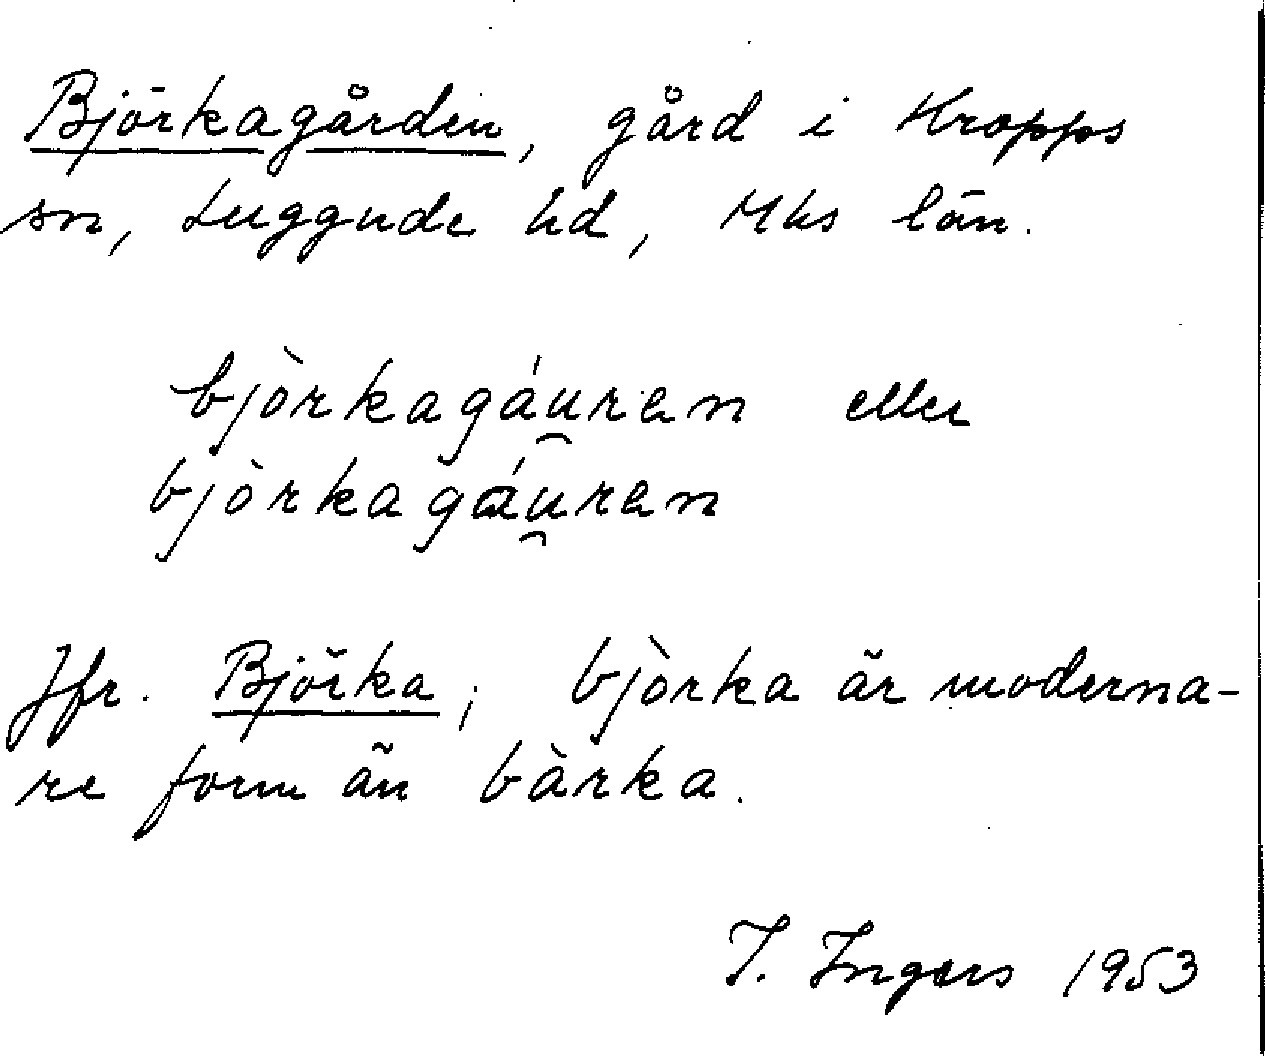 Björkagården, gård i Kropps
sn, Luggude hd, Mhs län.
bjòrkagáu̯ren eller
bjòrkagɑ́u̯ren
Jfr. Björka; bjòrka är moderna-
re form än bàrka.
I. Ingers 1953